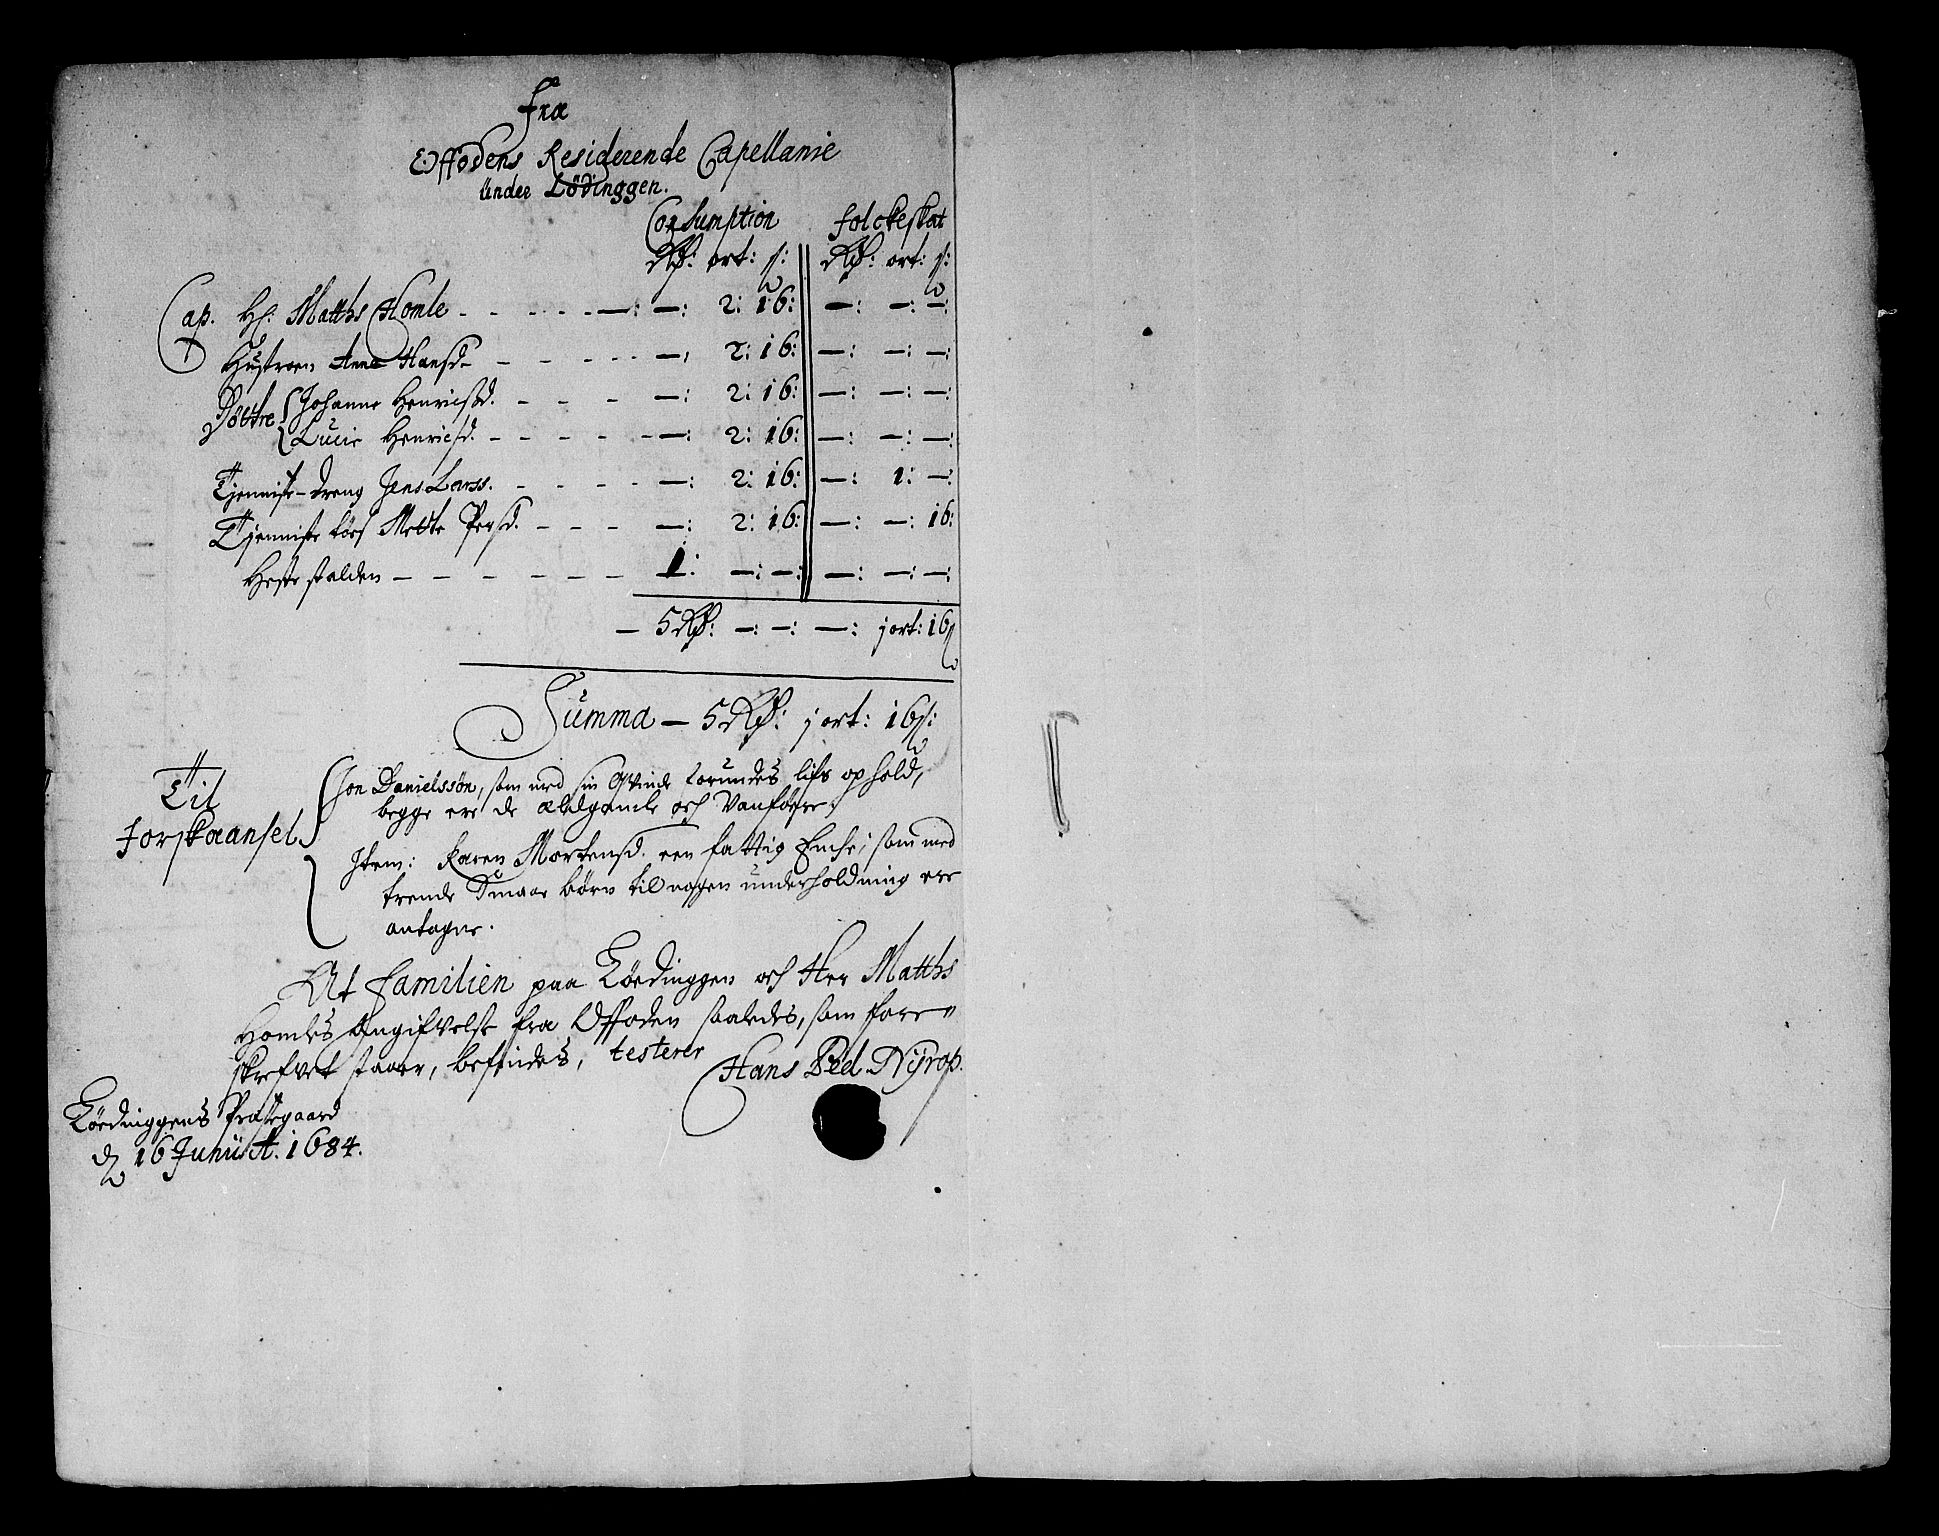 Fra
Offodens Residerende Capellanie
Under Lödinggen.
Consumption Folckeskat
Rdr: ort: s: Rdr: ort: s:
Cap. Hr: Matths Homle - - - - - —: —: 2: 16: —: —: —:
Hustroen Anne Hansd. - - - - - —: 2: 16: —: —: —:
Döttre { Johanne Henricsd. - - - —: 2: 16: —: —: —:
Lucie Henricsd. - - - - - —: 2: 16: —: —: —:
Tjenniste-dreng Jens Larss. - - - - —: 2: 16: —: 1: —:
Tjenniste töes Mette Persd. - - - —: 2: 16: —: —: 16:
Heste stalden - - - - - - 1: —: —: —: —: —:
— 5 Rdr: —: —: —: j ort: 16 s
Summa — 5 Rdr: j ort: 16 s:
Til Forskaansel { Jon Danielssön, som med sin Qvinde forundes lifs ophold,
begge ere de ældgamle och Vanföere;
Item: Karen Mortensd. een fattig Enche; som med
trende Smaae börn til nogen underholdning ere
antagne.
At Familien paa Löedinggen och Her Matths
Homles Angifvelse fra Offoden saaledes, som fore-
skrefvet staaer, befindes, testerer
Hans Ped Nyrop.
Löedinggens Præstegaard
d. 16 Junii A. 1684.